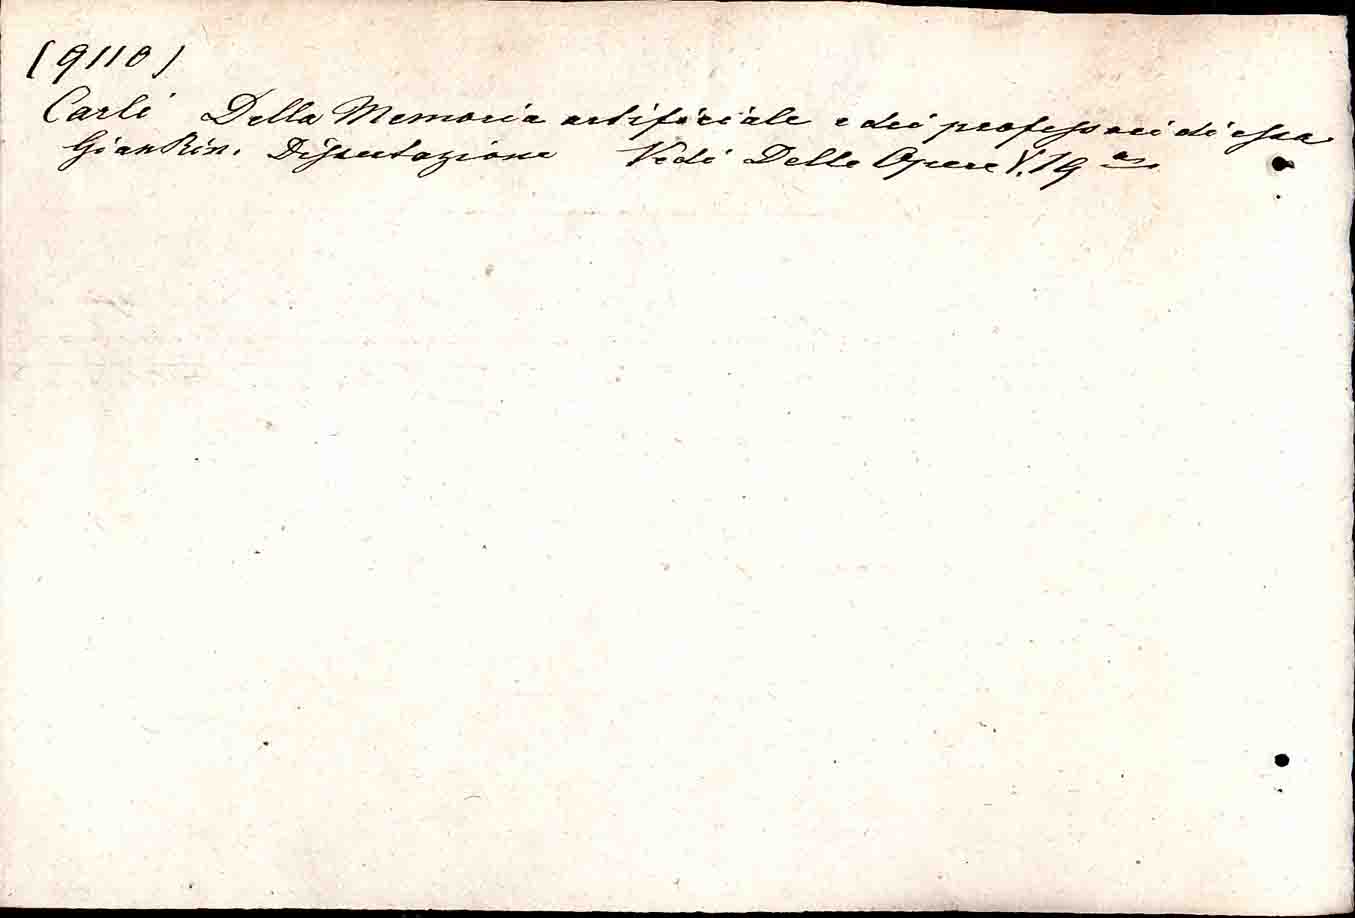 (9110)
Carli Della Memoria artificiale e dei professori di essa
Gian Rin. Dissertazione Vedi Delle Opere V. 19